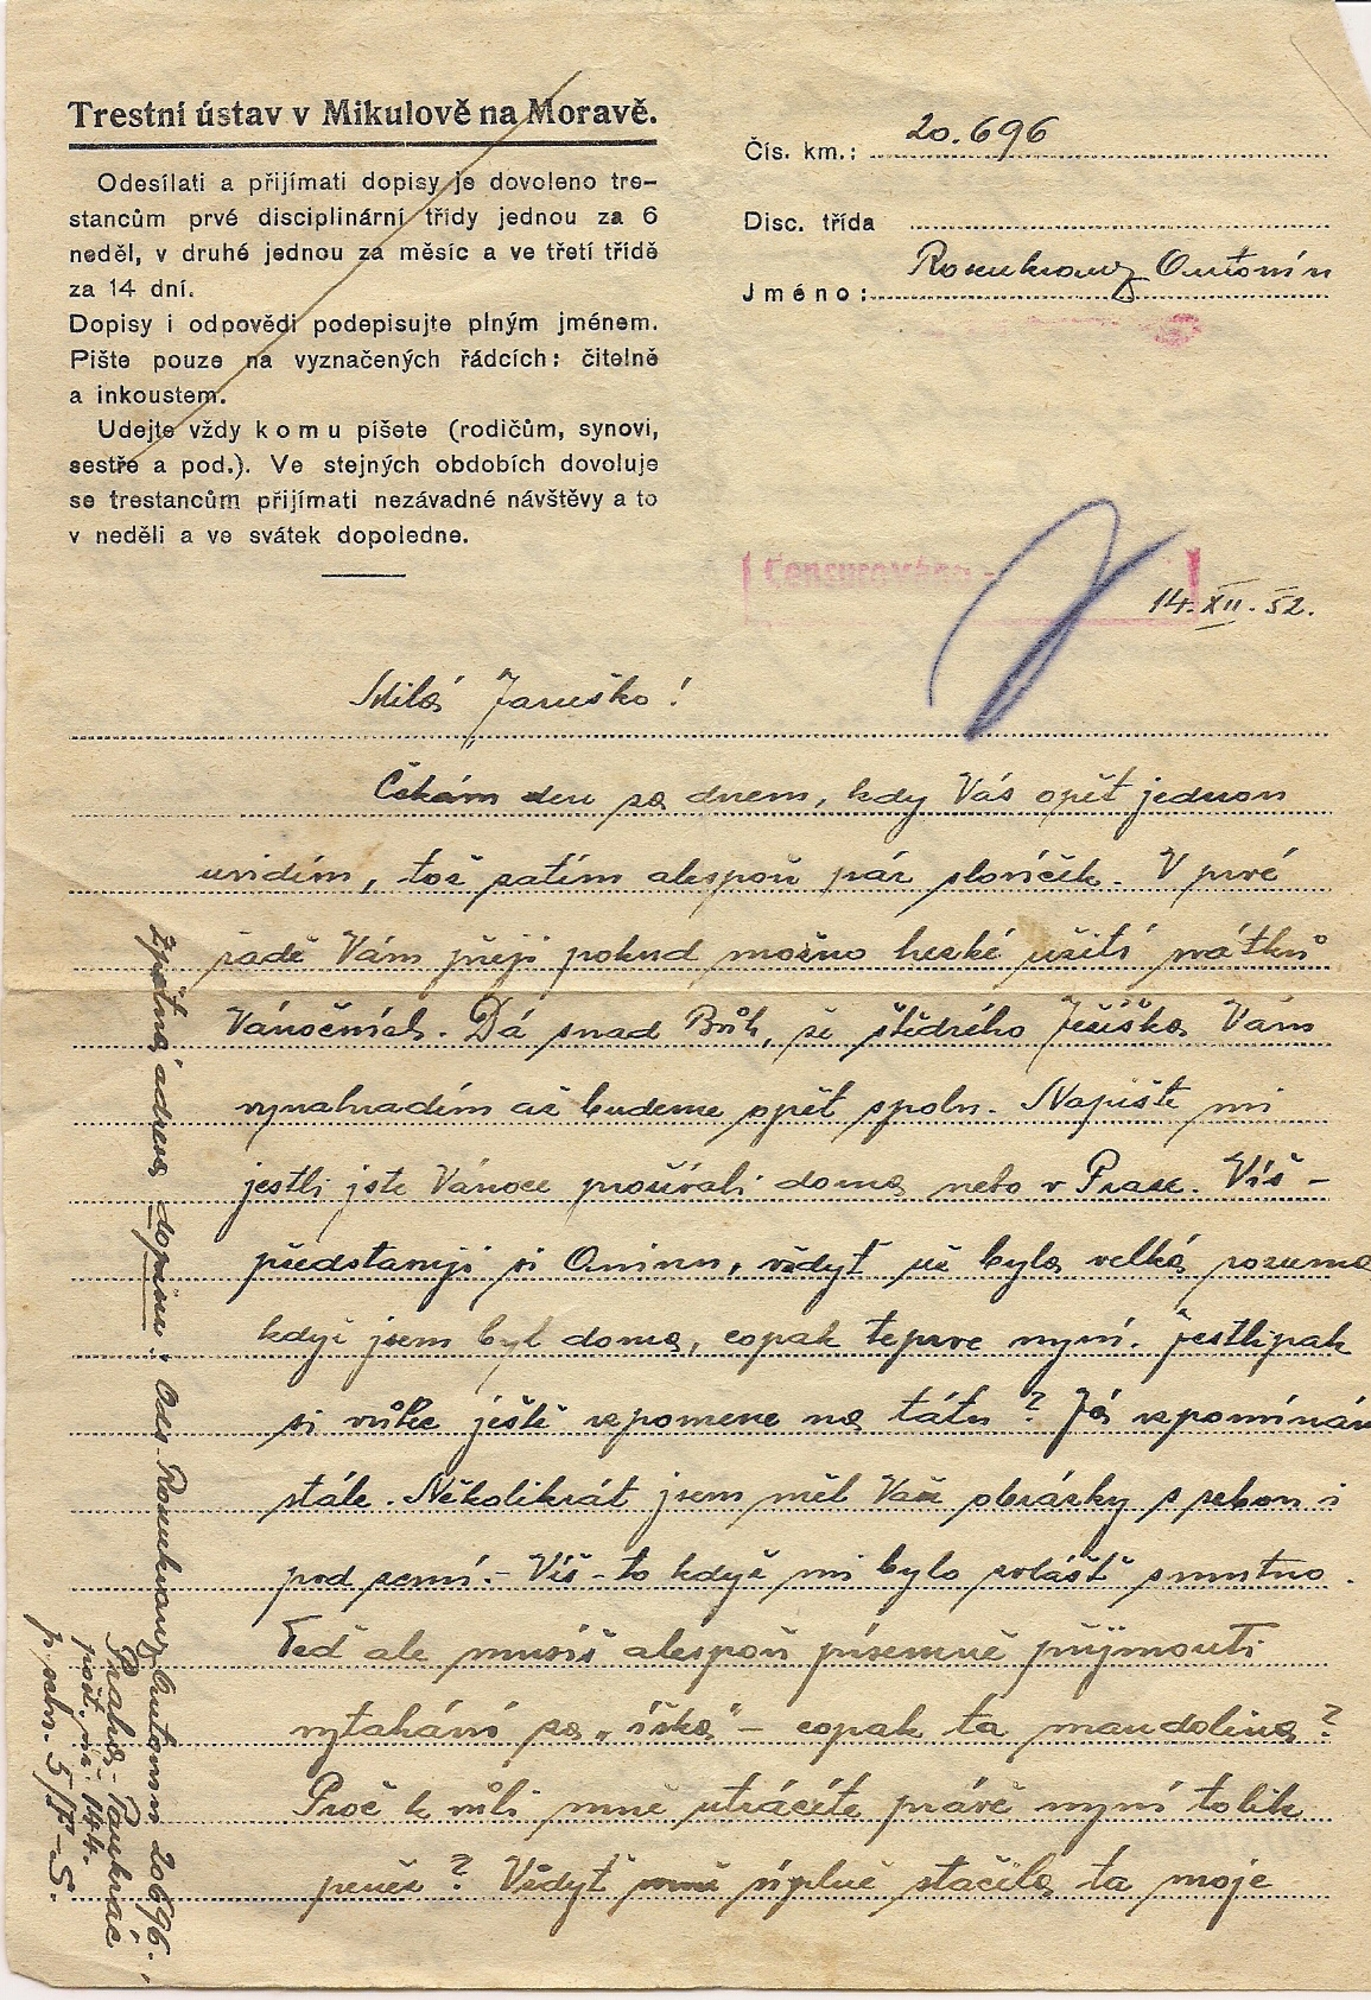 Trestní ústav v Mikulově na Moravě.
Odesílati a přijímati dopisy je dovoleno tre-
stancům prvé disciplinární třídy jednou za 6
neděl, v druhé jednou za měsíc a ve třetí třídě
za 14 dní.
Dopisy i odpovědi podepisujte plným jménem.
Pište pouze na vyznačených řádcích: čitelně
a inkoustem.
Udejte vždy komu píšete (rodičům, synovi,
sestře a pod.). Ve stejných obdobích dovoluje
se trestancům přijímati nezávadné návštěvy a to
v neděli a ve svátek dopoledne.
Čís. km.: 20.696
Disc. třída
Jméno: Rosenkranz Antonín
Censurováno -
14. XII. 52.
Milá Jaruško!
Čekám den za dnem, kdy Vás opět jednou
uvidím, tož zatím alespoň pár slovíček. V prvé
řadě Vám přeji pokud možno hezké užití svátků
Vánočních. Dá snad Bůh, že štědrého Ježíška Vám
vynahradím až budeme opět spolu. Napište mi
jestli jste Vánoce prožívali doma nebo v Praze. Víš -
představuji si Aninu, vždyť už byla velká rozuma
když jsem byl doma, copak teprve nyní. Jestlipak
si vůbec ještě vzpomene na tátu? Já vzpomínám
stále. Několikrát jsem měl Vaše obrázky s sebou i
pod zemí. - Víš - to když mi bylo zvlášť smutno.
Teď ale musíš alespoň písemně přijmouti
vytahání za „íška" - copak ta mandolina?
Proč k vůli mně utrácíte právě nyní tolik
peněz? Vždyť mně úplně stačila ta moje
Zpětná adresa dopisu: Ods. Rosenkranz Antonín 20696.
Praha - Pankrác
pošt. úř. 144.
p. schr. 5/P-S.